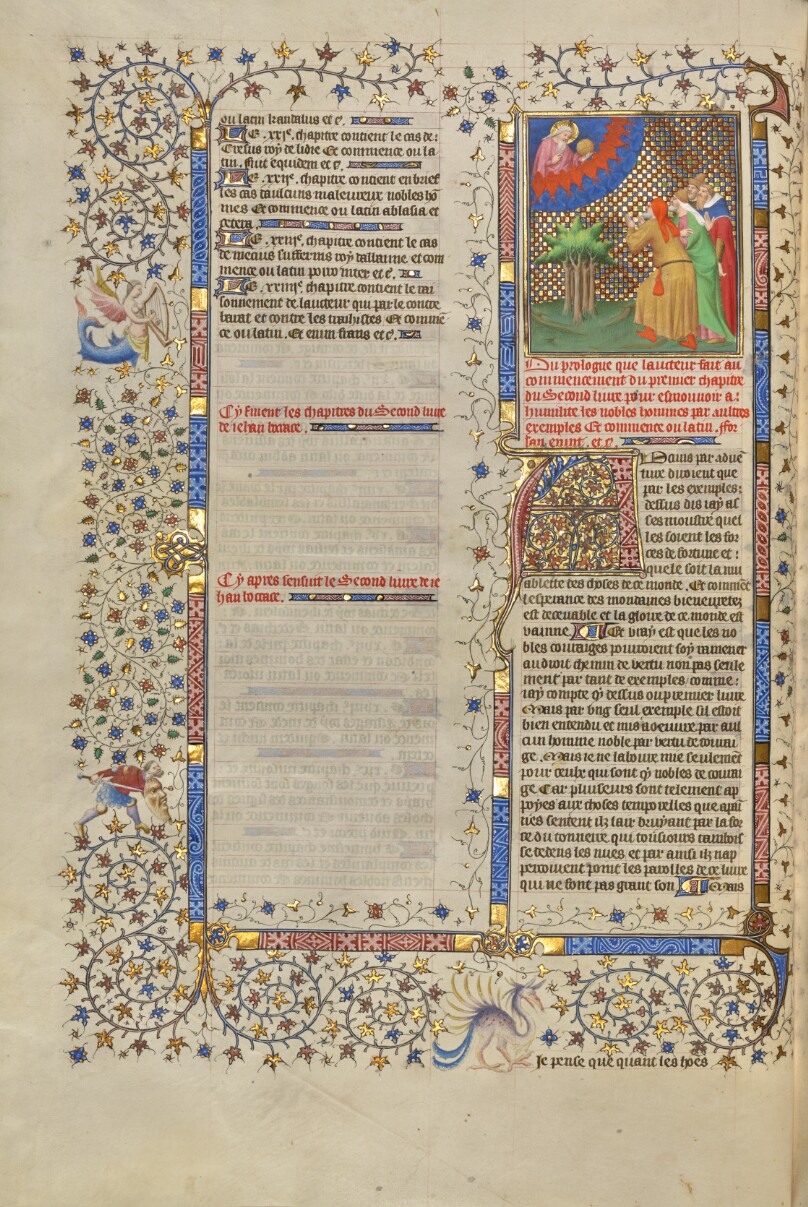 ou latin kandalus et c.
Le .xxie. chapitre contient le cas de:
Cresus roy de lidie Et commence ou la
tin. fuit equidem et c.
Le .xxiie. chapitre contient en brief
les cas daulcuns maleureux nobles hō
mes Et commence ou latin ablasia et
cetera
Le .xxiiie. chapitre contient le cas
de mecius suffecius roy dallanie et com
mence ou latin et c.
Le .xxiiiie. chapitre contient le rai
sonnement de laucteur qui parle contre
barat et contre les trahistes Et commē
ce ou latin. Et enim fraus et c.
Cy finent les chapitres du Second livre
de iehan bocace.
Cy apres sensuit le Second livre de ie
han bocace.
Du prologue que lauteur fait au
commencement du premier chapitre
du Second livre pour esmouvoir a:
humilite les nobles hommes par aultres
exemples Et commence ou latin. ffor
san erunt. et c.
Daucuns par aduē
ture diroient que
par les exemples:
dessus dis iay as
ses moustre quel
les soient les for
ces de fortune et:
quele soit la mu
ablette des choses de ce monde. Et comment
lesperance des mondaines bieneuretez
est decevable et la gloire de ce monde est
vainne. Et vray est que les no
bles couraiges pourroient soy ramener
au droit chemin de vertu non pas seule
ment par tant de exemples comme:
iay compte cy dessus ou premier livre
Mais par ung seul exemple sil estoit
bien entendu et mis a oeuvre par aul
cun homme noble par vertu de courai
ge. Mais ie ne labeure mie seulement
pour ceulx qui sont cy nobles de courai
ge Car pluseurs sont telement ap
poyes aux choses temporelles que a pai
nes sentent ilz lair bruyant par la for
ce du tonnerre. qui tousiours tambois
se dedens les nues et par ainsi ilz nap
percoivent point les parolles de ce livre
qui ne sont pas grant son. Mais
Je pense que quant les hōes